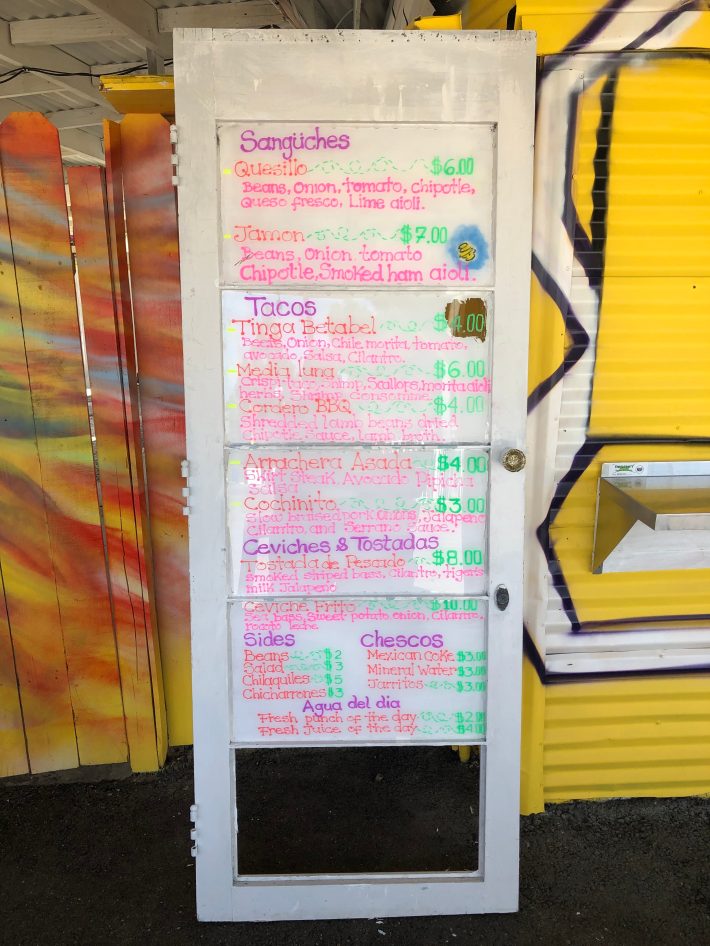 Sangüches
Quesillo $6.00
Beans, Onion, tomato, chipotle,
Queso fresco, Lime aioli.
Jamon $7.00
Beans, onion tomato
Chipotle, Smoked ham aioli.
Tacos
Tinga Betabel $4.00
Beets, Onion, Chile, morita, tomato,
avocado, Salsa, Cilantro.
Media luna $6.00
Crispi taco, Shimp, Scallops, morita aioli
herbs, Shrimp consomme.
Cordero BBQ $4.00
Shredded lamb beans dried
Chipotle, Sauce, lamb broth.
Arrachera Asada $4.00
Skirt Steak, Avocado Pipicha
Salsa
Cochinito $3.00
Slow bruised pork Onions, Jalapeño
Cilantro and Serrano Sauce.
Ceviches & Tostadas
Tostada de Pescado $8.00
Smoked striped bass, Cilantro, tiger's
milk Jalapeno
Ceviche Frito $10.00
Sea bass, Sweet potato onion, Cilantro,
rocoto leche
Sides Chescos
Beans $2 Mexican Coke $3.00
Salad $3 Mineral Water $3.00
Chilaquiles $5 Jarritos $3.00
Chicharrones $3
Agua del dia
Fresh punch of the day $2.00
Fresh Juice of the day $4.00